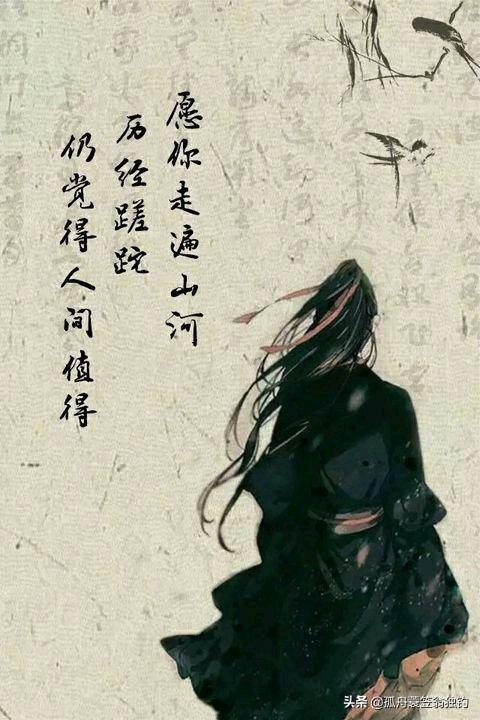 愿你走遍山河
历经蹉跎
仍觉得人间值得
头条 @孤舟蓑笠翁独钓